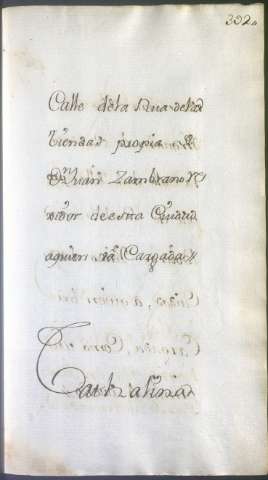 302
Calle de la Rua de las
tiendas propia de
Dn Juan Zambrano R
vezor de esta Ciudad
a quien va Cargada
Cathalina